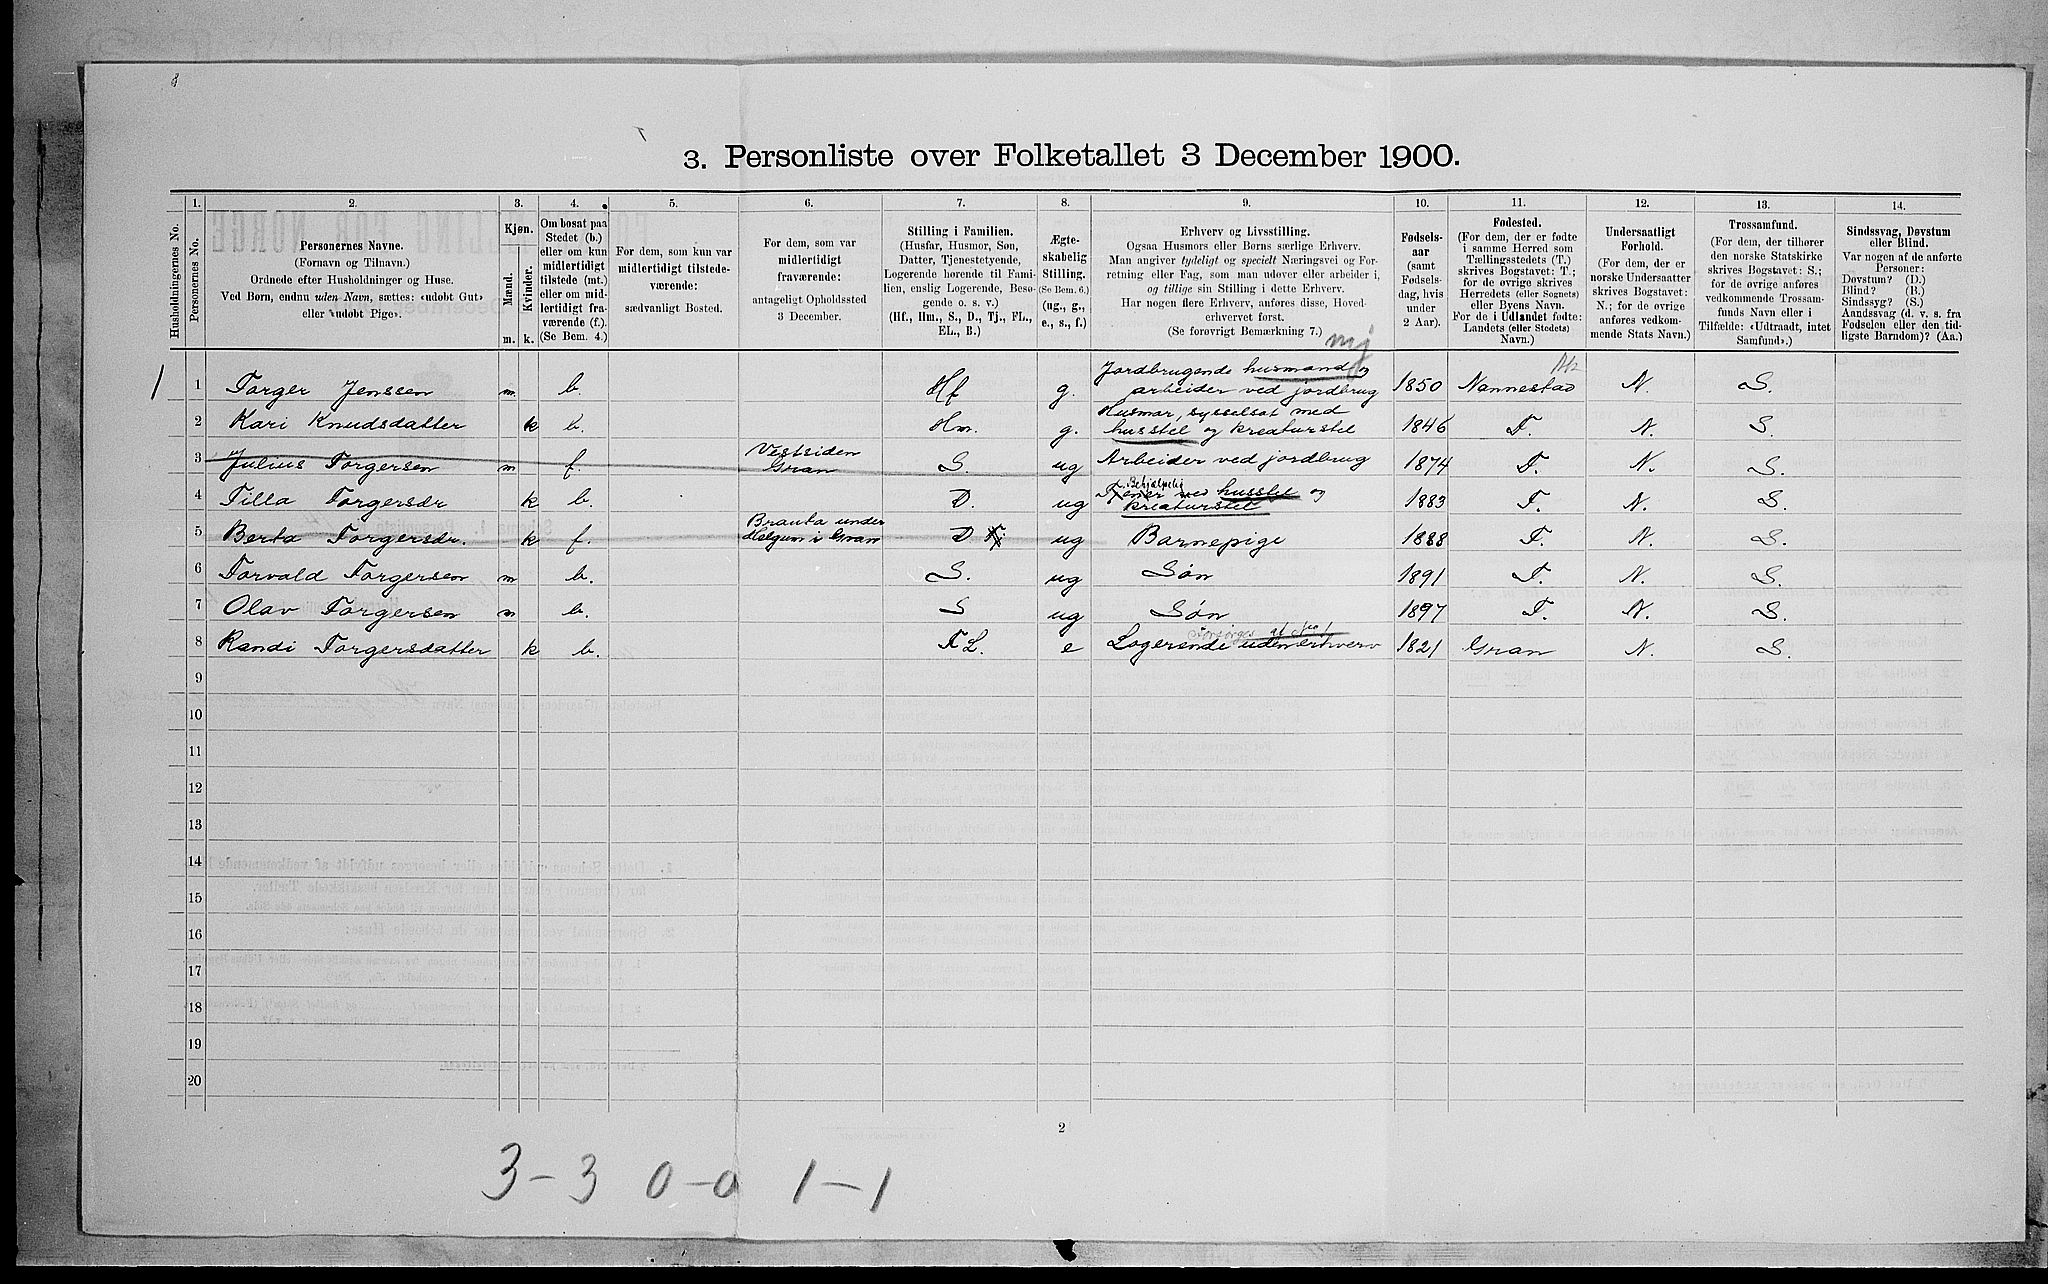 3. Personliste over Folketallet 3 December 1900.
Husholdningernes No.
1.
Personernes No.
2.
Personernes Navne.
(Fornavn og Tilnavn.)
Ordnede efter Husholdninger og Huse.
Ved Børn, endnu uden Navn, sættes: «udøbt Gut»
eller «udøbt Pige».
3.
Kjøn.
Mænd.
Kvinder.
m.
k.
4.
Om bosat paa
Stedet (b.)
eller om kun
midlertidigt
tilstede (mt.)
eller om mid-
lertidigt fra-
værende (f.).
(Se Bem. 4.)
5.
For dem, som kun var
midlertidigt tilstede-
værende:
sædvanligt Bosted.
6.
For dem, som var
midlertidigt
fraværende:
antageligt Opholdssted
3 December.
7.
Stilling i Familien.
(Husfar, Husmor, Søn,
Datter, Tjenestetyende,
Logerende hørende til Fami-
lien, enslig Logerende, Besø-
gende o. s. v.)
(Hf., Hm., S., D., Tj., FL.,
EL., B.)
8.
Ægte-
skabelig
Stilling.
(Se Bem. 6.)
(ug., g.,
e., s., f.)
9.
Erhverv og Livsstilling.
Ogsaa Husmors eller Børns særlige Erhverv.
Man angiver tydeligt og specielt Næringsvei og For-
retning eller Fag, som man udover eller arbeider i,
og tillige sin Stilling i dette Erhverv.
Har nogen flere Erhverv, anføres disse, Hoved-
erhvervet først.
(Se forøvrigt Bemærkning 7.)
10.
Fødsels-
aar
(samt
Fødsels-
dag, hvis
under
2 Aar).
11.
Fødested.
(For dem, der er fødte
i samme Herred som
Tællingsstedets (T.)
skrives Bogstavet: T.;
for de øvrige skrives
Herredets (eller Sognets)
eller Byens Navn.
For de i Udlandet fødte:
Landets (eller Stedets)
Navn.)
12.
Undersaatligt
Forhold.
(For dem, der er
norske Undersaatter
skrives Bogstavet:
N.; for de øvrige
anføres vedkom-
mende Stats Navn.)
13.
Trossamfund.
(For dem, der tilhører
den norske Statskirke
skrives Bogstavet: S.;
for de øvrige anføres
vedkommende Trossam-
funds Navn eller i
Tilfælde: «Udtraadt, intet
Samfund».)
14.
Sindssvag, Døvstum
eller Blind.
Var nogen af de anførte
Personer:
Døvstum? (D.)
Blind? (B.)
Sindssyg? (S.)
Aandssvag (d. v. s. fra
Fødselen eller den tid-
ligste Barndom)? (Aa.)
1 1 Torger Jenssen m b. Hf g. Jordbrugende husmand og arbeider ved jordbrug 1850 Nannestad N. S.
2 Kari Knudsdatter k b. Hm. g. Husmor, sysselsat med husstel og kreaturstel 1846 T. N. S.
3 Julius Torgersen m f. Vestsiden Gran S. ug Arbeider ved jordbrug 1874 T. N. S.
4 Tilla Torgersdr k b. D. ug Tjener Behjælpelig med husstel og kreaturstel 1883 T. N. S.
5 Berta Torgersdr. k f. Brauta under Helgum i Gran D ug Barnepige 1888 T. N. S.
6 Torvald Torgersen m b. S. ug Søn 1891 T. N. S.
7 Olav Torgersen m b. S ug Søn 1897 T. N. S.
8 Randi Torgersdatter k b. FL. e Forsørges af No 1 Logerende uden erhverv 1821 Gran N. S.
9
10
11
12
13
14
15
16
17
18
19
20
2
3-3 0-0 1-1